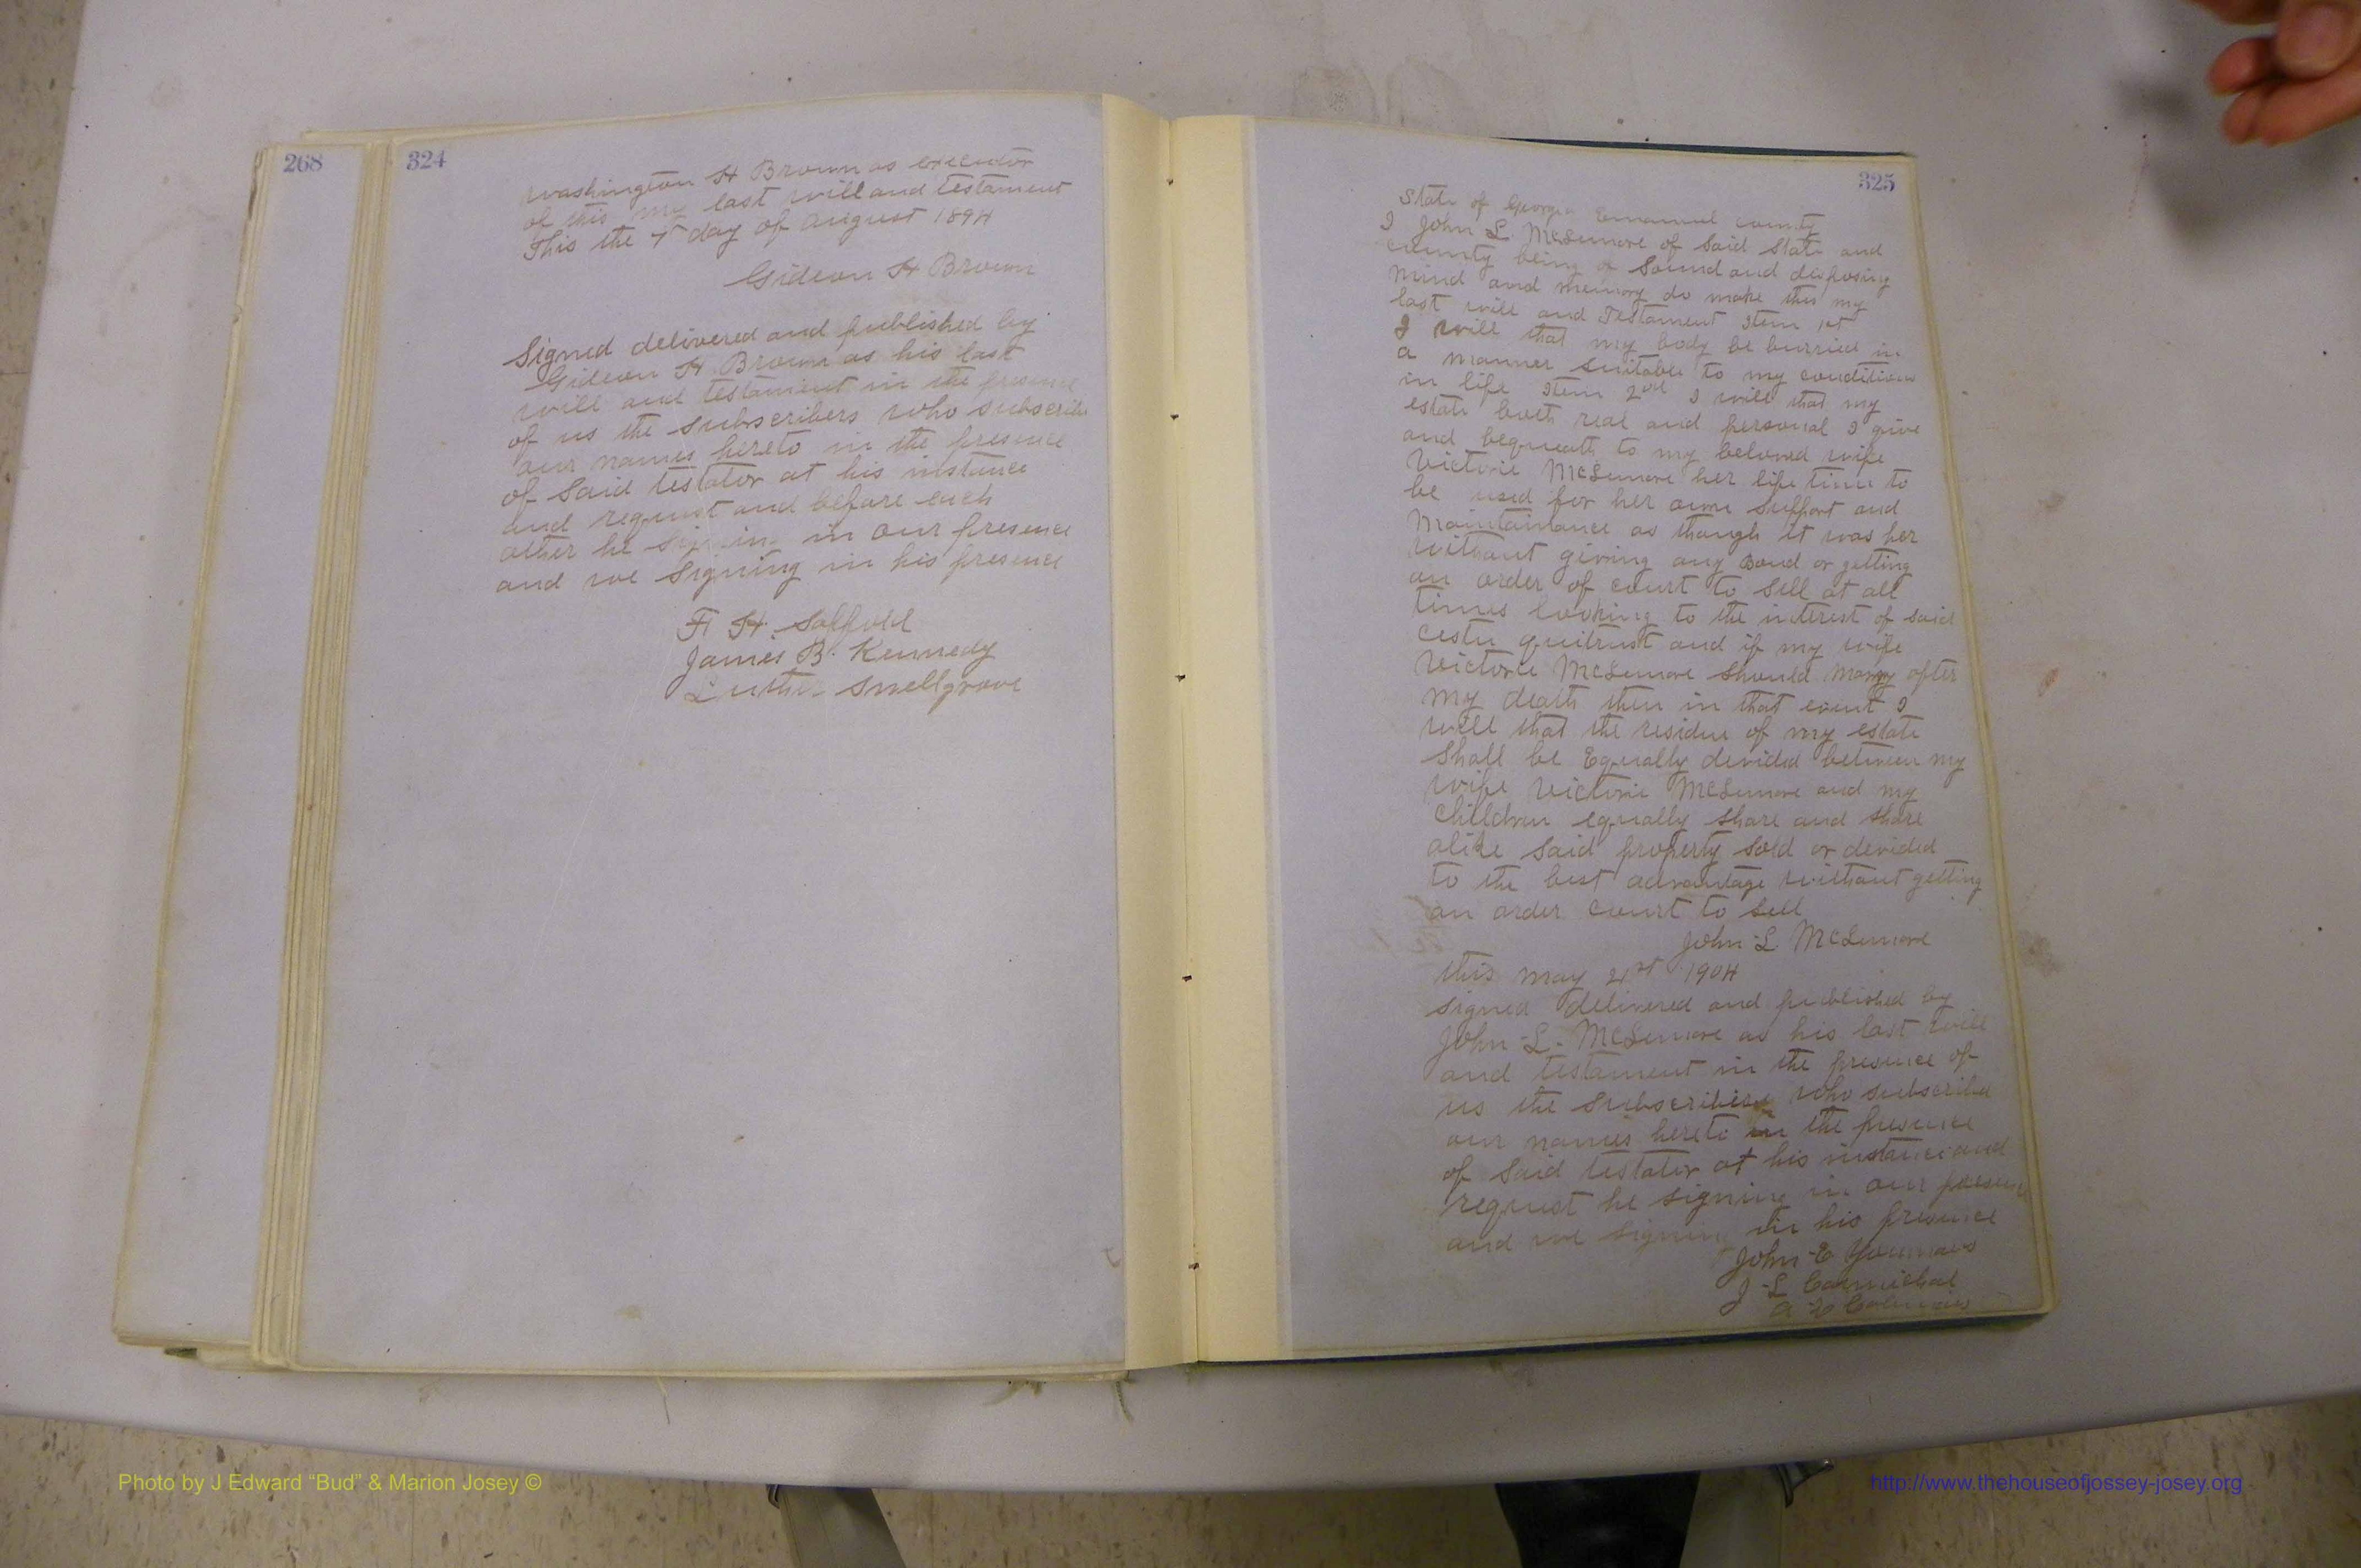 268
324
Washington H Brown as executor
of this my last will and testament
This the 7th day of August 1894
Gideon H Brown
Signed delivered and published by
Gideon H. Brown as his last
will and testament in the presence
of us the subscribers who subscribe
our names hereto in the presence
of Said testator at his instance
and request and before each
other he signing in our presence
and we Signing in his presence
F. H. Saffold
James B. Kennedy
Luther Snellgrove
325
State of Georgia Emanuel county
I John L. McLemore of Said State and
county being of Sound and disposing
mind and memory do make this my
last will and Testament Item 1st
I will that my body be burried in
a manner suitable to my condition
in life Item 2nd I will that my
estate both real and personal I give
and bequeath to my beloved wife
Victorie McLemore her life time to
be used for her own Support and
Maintainance as though it was her
without giving any Bond or getting
an order of court to Sell at all
times looking to the interest of said
cestu quitrust and if my wife
Victorie McLemore Should Marry after
my death then in that event I
will that the residue of my estate
Shall be Equally devided between my
wife Victorie McLemore and my
Children equally Share and Share
alike Said property Sold or devided
to the best advantage without getting
an order court to Sell
John L McLemore
this may 21st 1904
signed delivered and published by
John L. McLemore as his last will
and testament in the presence of
us the Subscribers who subscribe
our names hereto in the presence
of Said testator at his instance and
request he signing in our presence
and we signing in his presence
John E Youmans
J L Carmichal
Photo by J Edward “Bud” & Marion Josey ©
http://www.thehouseofjossey-josey.org